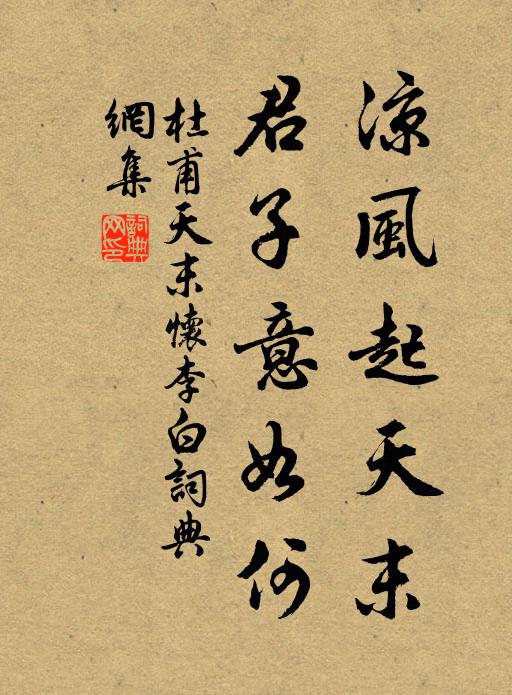 涼風起天末
君子意如何
杜甫天末懷李白詞典
網集
詞典
网印